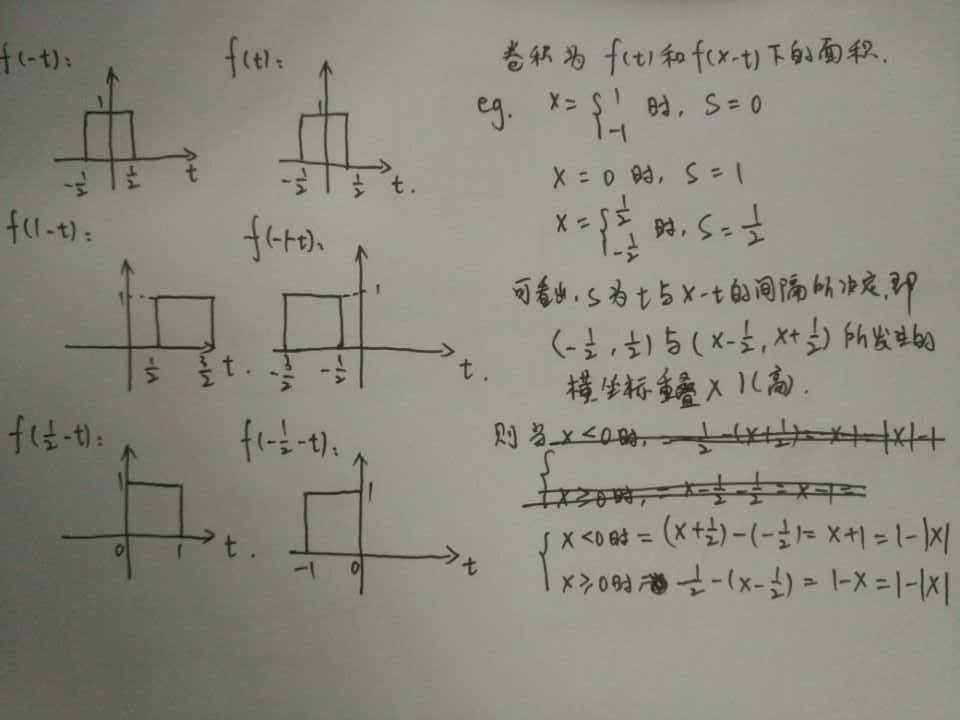 f(-t):
1
-1/2 1/2 t
f(t):
1
-1/2 1/2 t.
f(1-t):
1
1/2 3/2 t.
f(-1-t):
1
-3/2 -1/2 t.
f(1/2-t):
1
0 1 t.
f(-1/2-t):
1
-1 0 t
卷积为 f(t)和f(x-t)下的面积.
eg. x={1 -1 时, S=0
x=0时, S=1
x={1/2 -1/2 时, S=1/2
可看出, S为t与x-t的间隔所决定,即
(-1/2, 1/2)与(x-1/2, x+1/2)所发生的
横坐标重叠×1(高).
则当x<0时, 1/2-(x+1/2)= x-1=|x|-1
{x≥0时, =x-1/2-1/2=x-1=
{x<0时=(x+1/2)-(-1/2)=x+1=1-|x|
x≥0时= 1/2-(x-1/2)=1-x=1-|x|